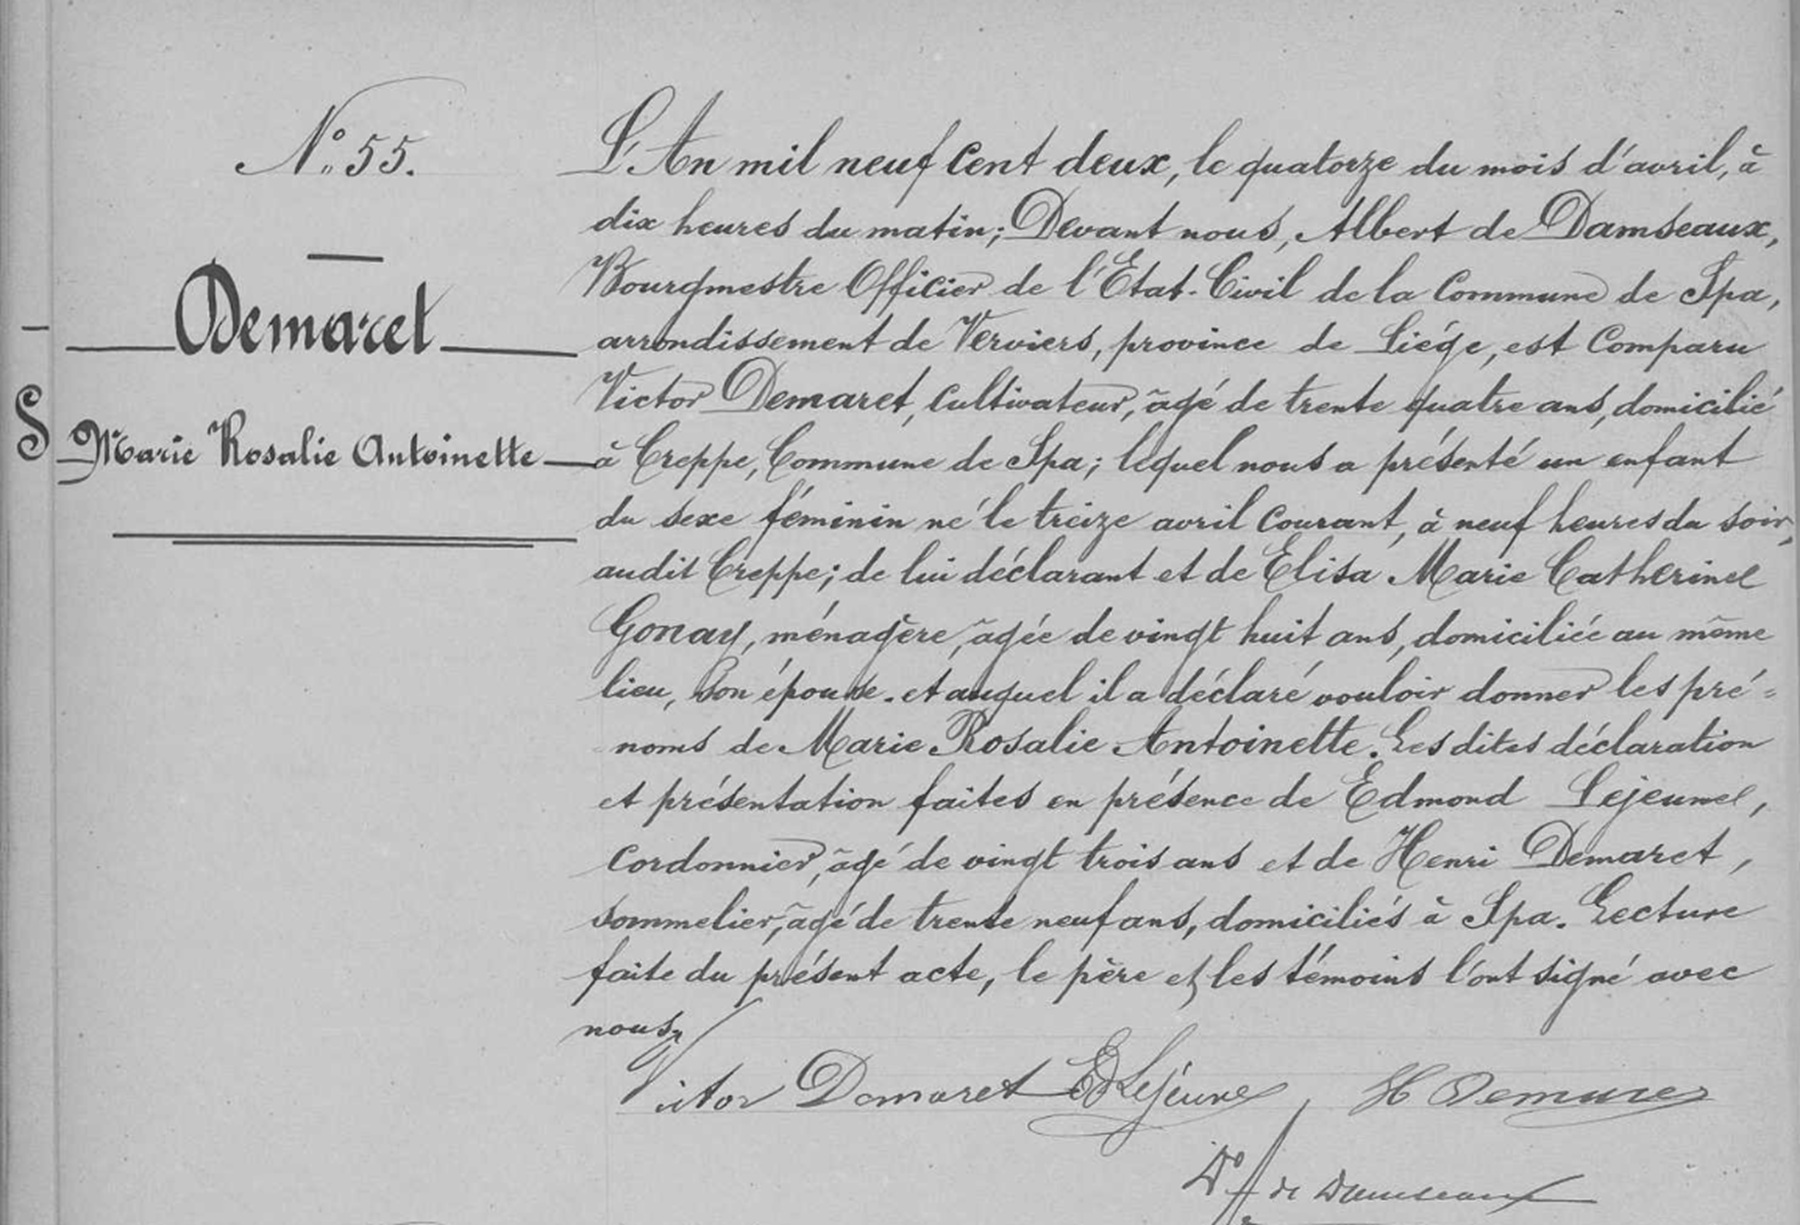 N° 55.
Demaret
S
Marie Rosalie Antoinette
L'An mil neuf cent deux, le quatorze du mois d'avril, à
dix heures du matin; Devant nous, Albert de Damseaux,
Bourgmestre Officier de l'Etat-Civil de la Commune de Spa,
arrondissement de Verviers, province de Liége, est comparu
Victor Demaret, cultivateur, âgé de trente quatre ans, domicilié
à Creppe, Commune de Spa; lequel nous a présenté un enfant
du sexe féminin né le treize avril courant, à neuf heures du soir,
audit Creppe; de lui déclarant et de Elisa Marie Catherine
Gonay, ménagère, âgée de vingt huit ans, domiciliée au même
lieu, son épouse. et auquel il a déclaré vouloir donner les pré=
noms de Marie Rosalie Antoinette. Les dites déclaration
et présentation faites en présence de Edmond Lejeune,
cordonnier, âgé de vingt trois ans et de Henri Demaret,
sommelier, âgé de trente neuf ans, domiciliés à Spa. Lecture
faite du présent acte, le père et les témoins l'ont signé avec
nous
Victor Demaret Ed Lejeune H Demaret
Dr A de Damseaux